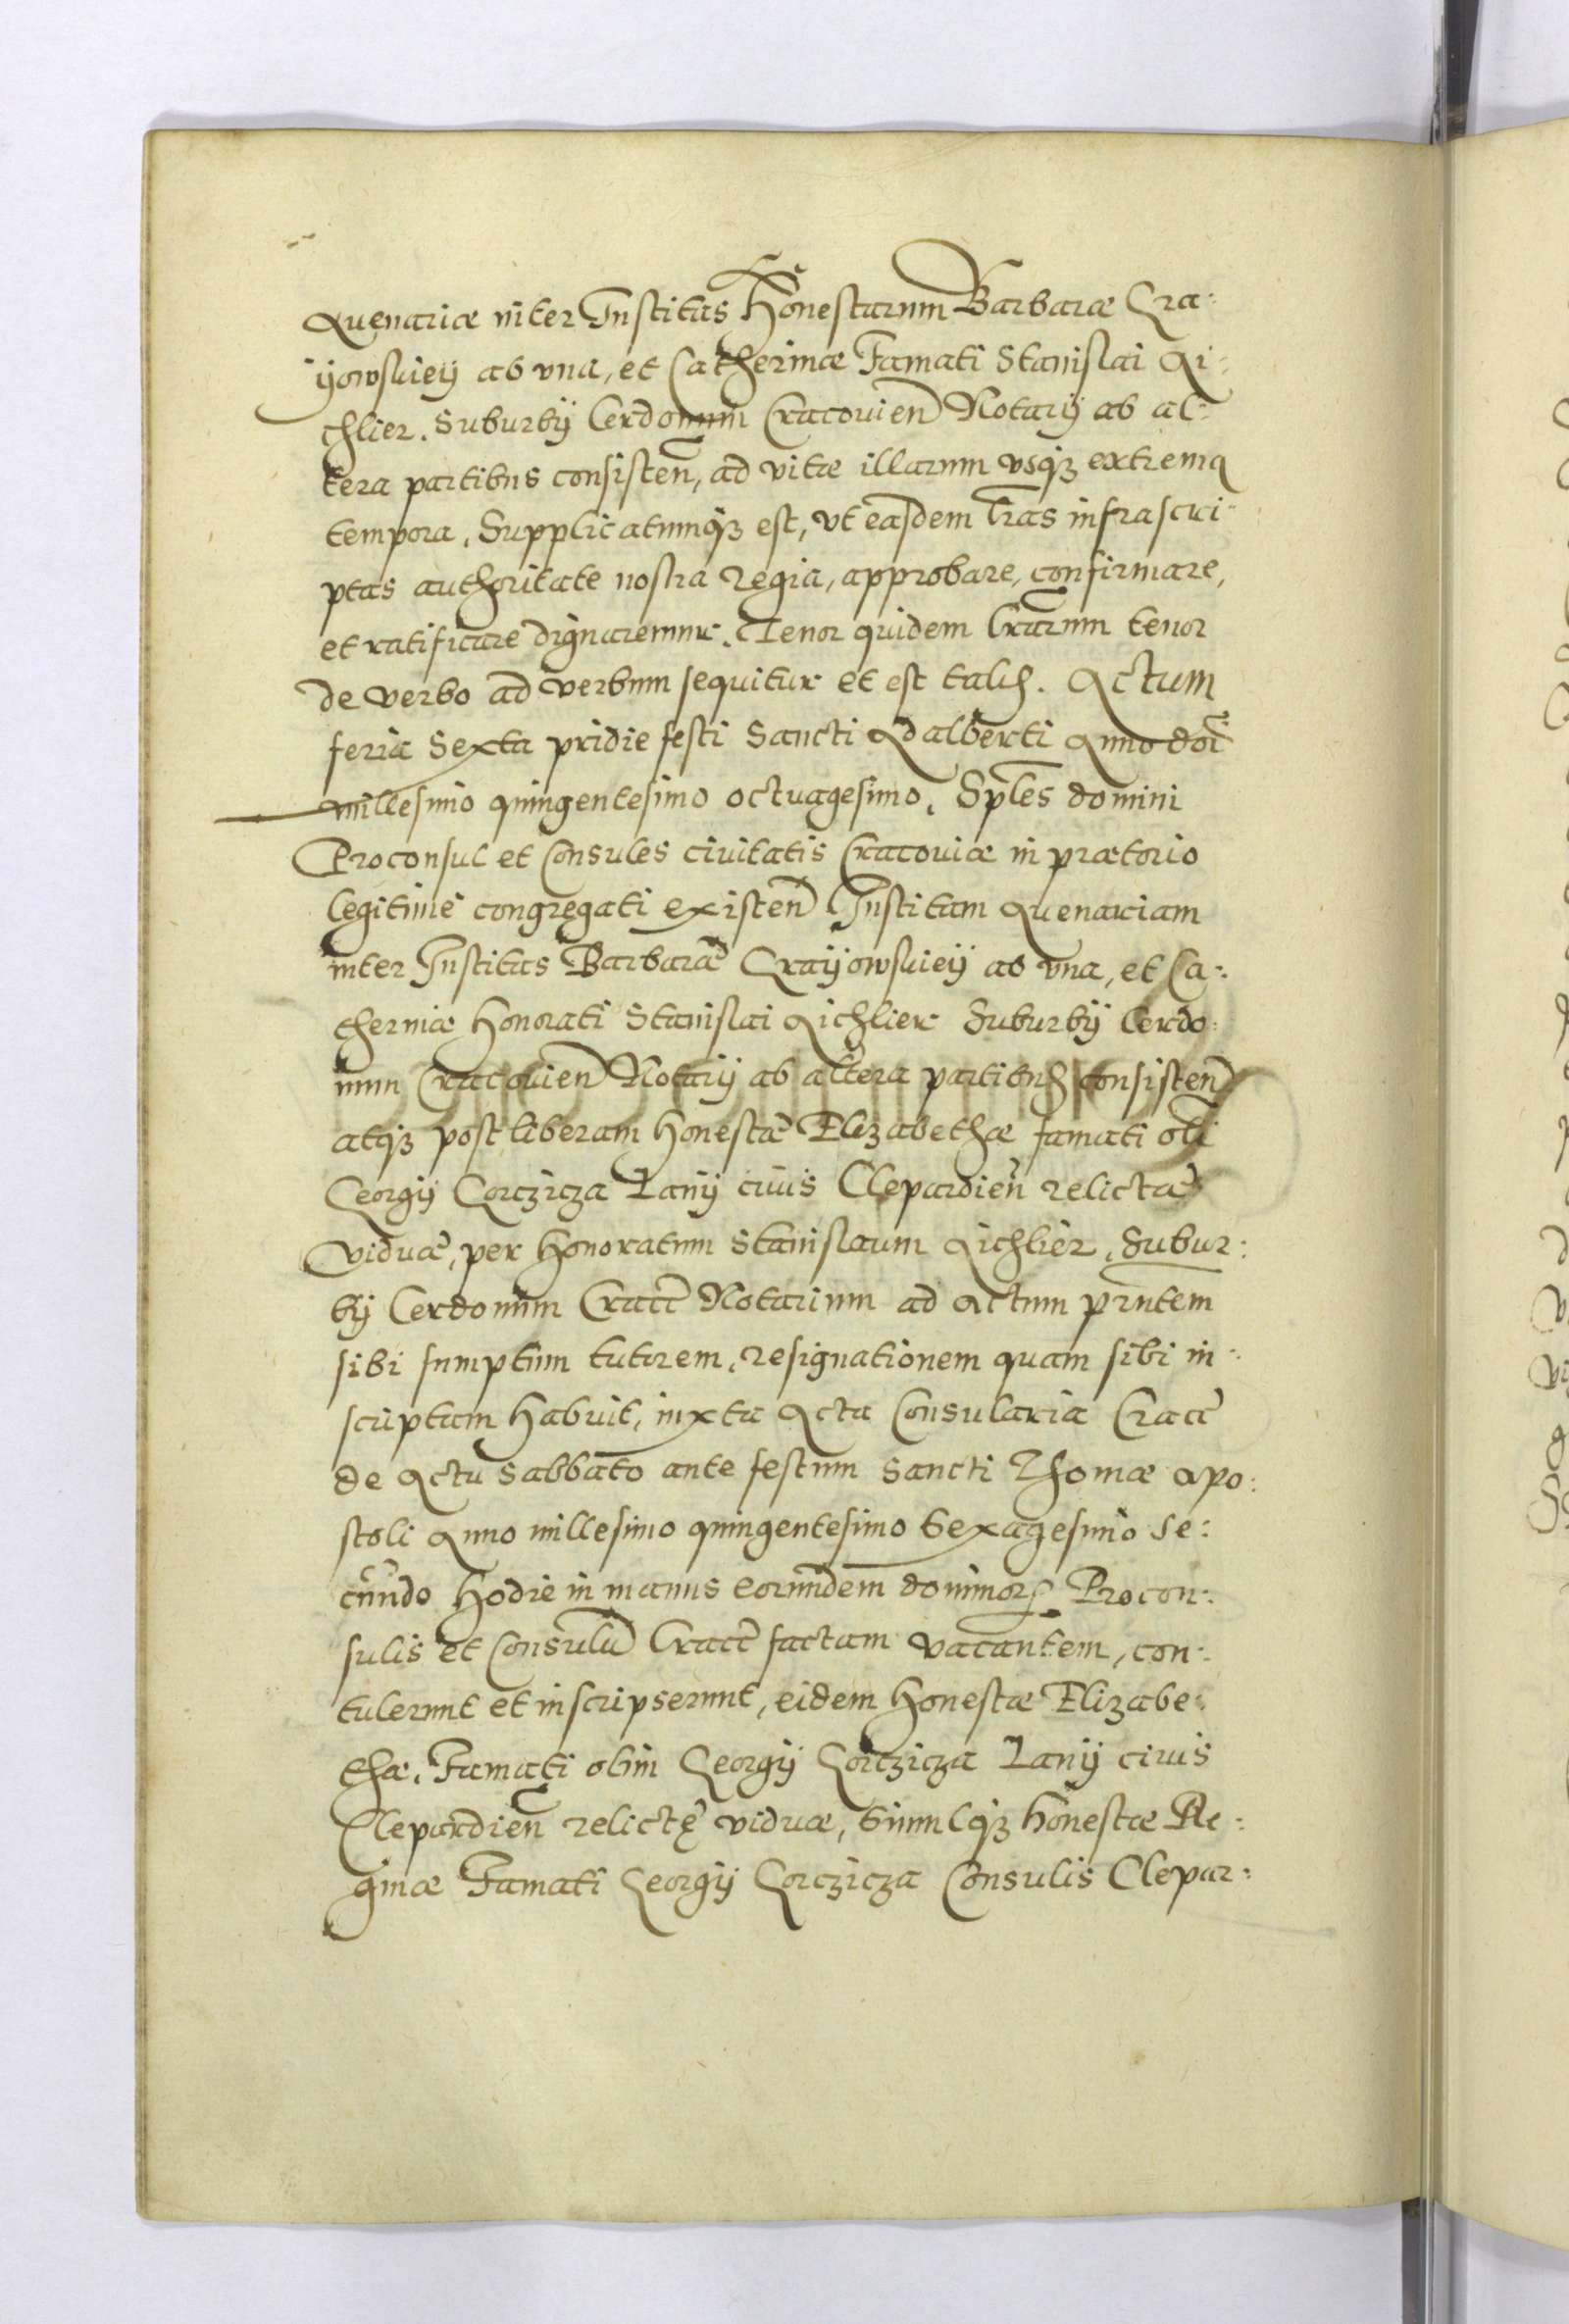 Auenariæ inter Institas Honestarum Barbaræ Kra:
ijowskiey ab vna, et Catherinæ Famati Stanislai Ai:
chler. Suburbÿ Cerdonum Cracouien Notarÿ ab al:
tera partibus consisten, ad vitæ illarum vsq3 extrema
tempora. Supplicatumq3 est, vt easdem lras infrascri:
ptas authoritate nostra regia, approbare, confirmare,
et ratificare dignaremur. Tenor quidem lrarum tenor
de verbo ad verbum sequitur et est talis. Actum
feria Sexta pridie festi Sancti Adalberti Anno doi
millesimo quingentesimo octuagesimo. Sples domini
Proconsul et Consules ciuitatis Cracouiæ in prætorio
legitime congregati existen Institam Auenariam
inter Institas Barbaræ Kraÿowskieÿ ab vna, et Ca:
therinæ Honorati Stanislai Aichlier Suburbÿ Cerdo:
num Cracouien Notarÿ ab altera partibus consisten
atq3 post liberam honestæ Elizabethæ famati oli
Georgÿ Gorczicza Lanÿ ciuis Clepardien relictæ
viduæ, per Honoratum Stanislaum Aichlier. Subur:
bÿ Cerdonum Cracc Notarium ad Actum prntem
sibi sumptum tutorem, resignationem quam sibi in:
scriptam habuit, iuxta Acta Consularia Cracc
de Actu Sabbato ante festum Sancti Thomæ Apo:
stoli Anno millesimo quingentesimo Sexagesimo Se:
cundo Hodie in manus eorundem dominor Procon:
sulis et Consulu Cracc factam vacantem, con:
tulerunt et inscripserunt, eidem Honestæ Elizabe:
thæ, Famati olim Georgÿ Gorczicza Lanÿ ciuis
Clepardien relictę viduæ, Simulq3 Honestæ Re:
ginæ Famati Georgÿ Gorczicza Consulis Clepar: